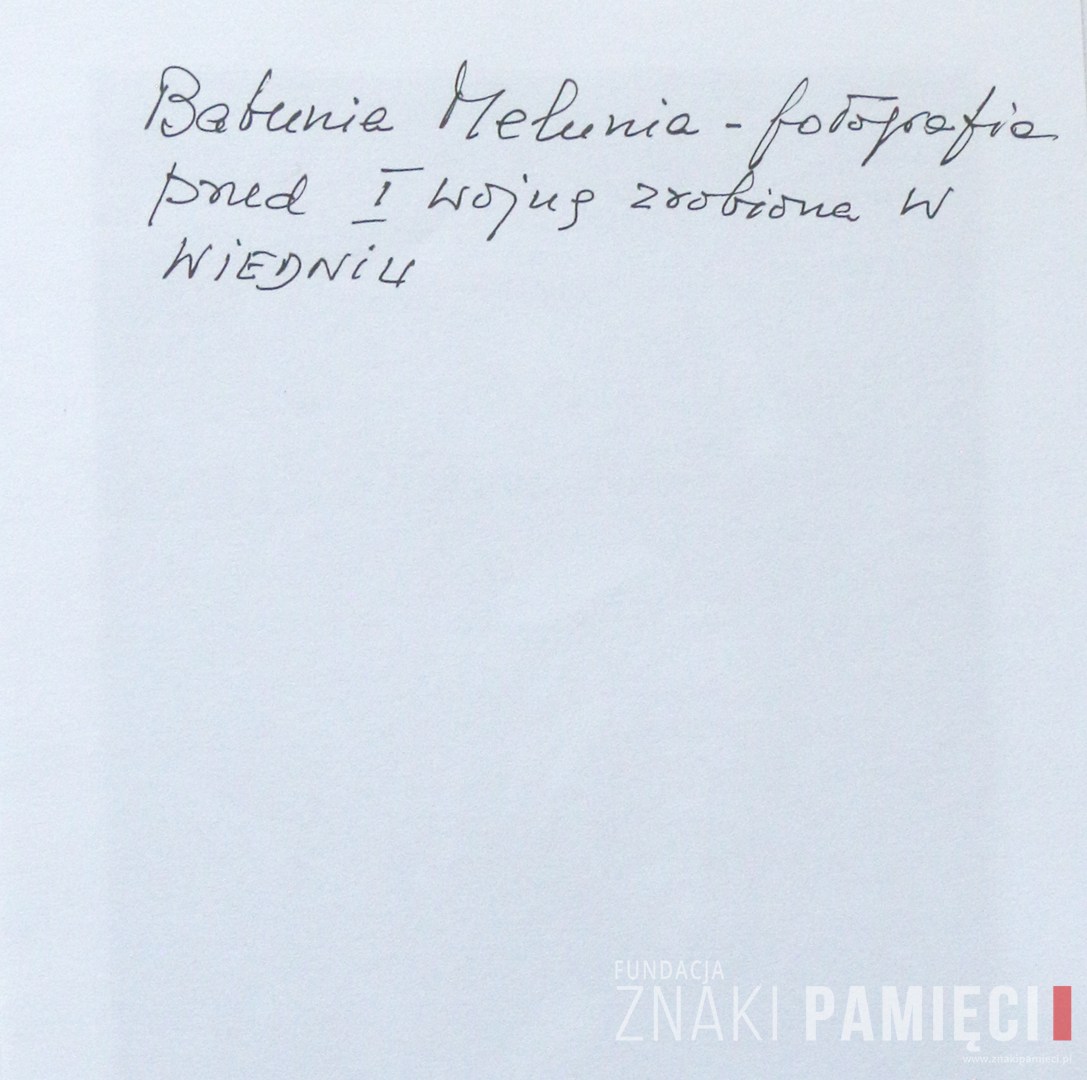 Babunia Melunia - fotografia
przed I wojną zrobiona w
WIEDNIU
FUNDACJA
ZNAKI PAMIĘCI
www.znakipamieci.pl